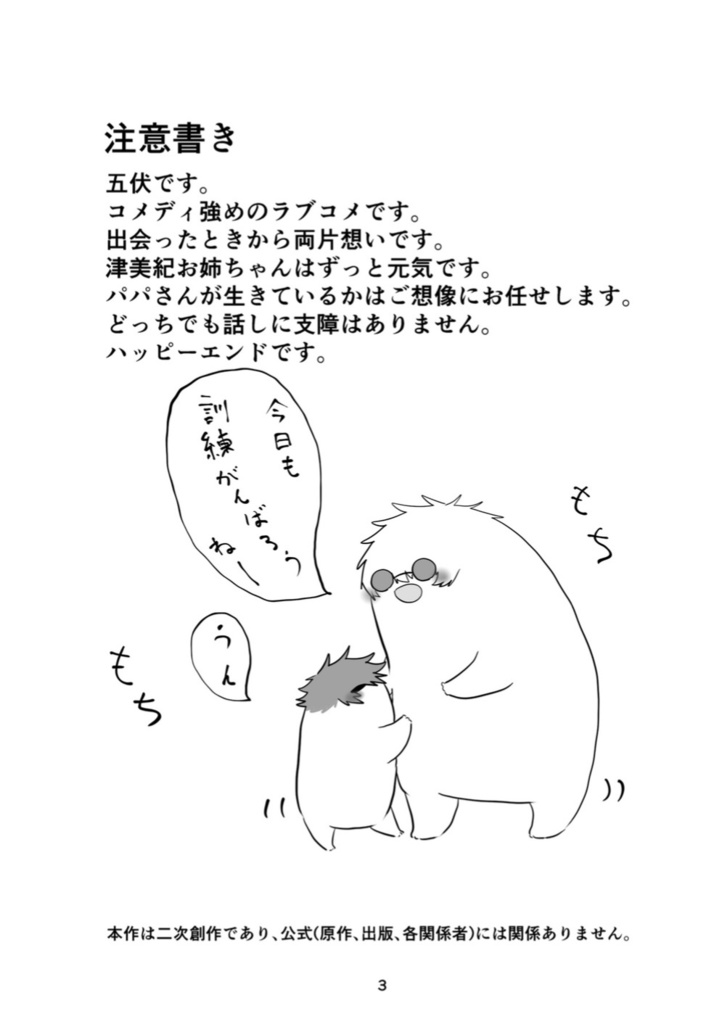 注意書き
五伏です。
コメディ強めのラブコメです。
出会ったときから両片想いです。
津美紀お姉ちゃんはずっと元気です。
パパさんが生きているかはご想像にお任せします。
どっちでも話しに支障はありません。
ハッピーエンドです。
今日も
訓練がんばろう
ねー
うん
もち
もち
本作は二次創作であり、公式(原作、出版、各関係者)には関係ありません。
3